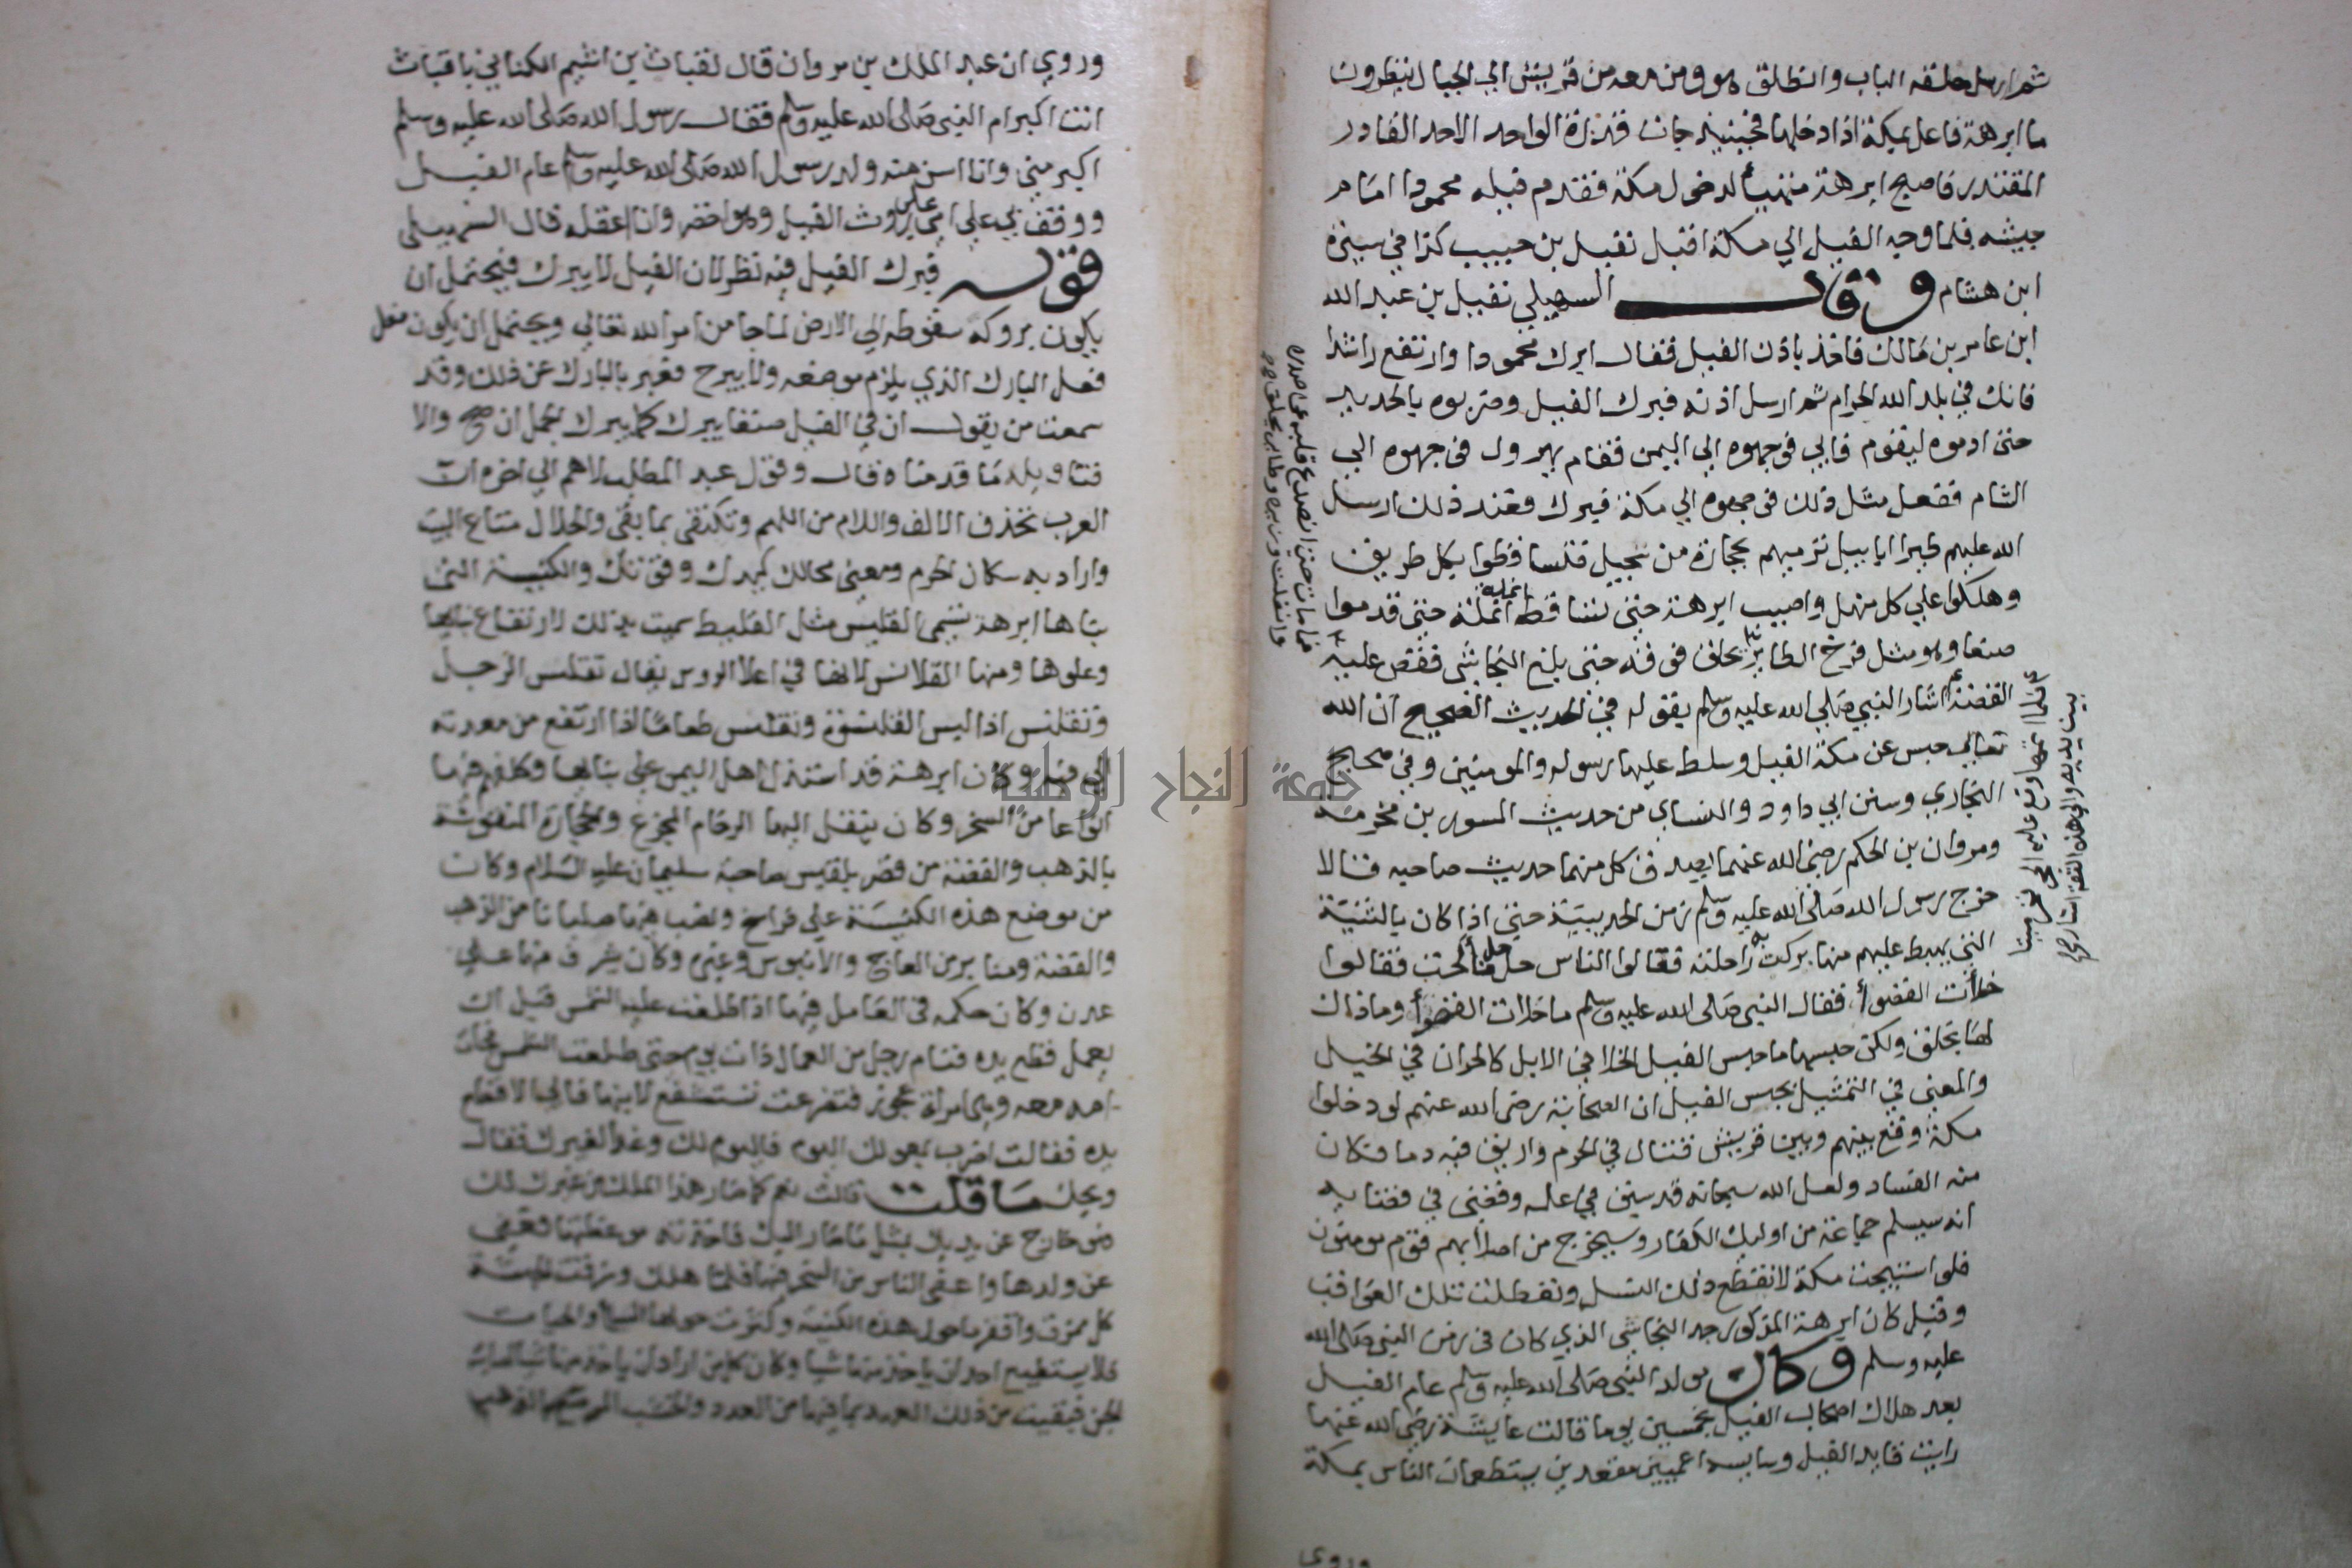 ثم ارسل حلقه الباب وانطلق هو ومن معه من قريش الي الجبال ينظرون
ما ابرهة فاعل بمكة اذا دخلها فحينيذ جات قدرة الواحد الاحد القادر
المقتدر فاصبح ابرهة متهيأ لدخول مكة فقدم فيله محمودا امام
جيشه فلما وجه الفيل الي مكة اقبل نفيل بن حبيب كذا في سيرة
ابن هشام وقال السهيلي نفيل بن عبد الله
ابن عامر بن مالك فاخذ باذن الفيل فقال ابرك محمودا وارتفع راشدا
فانك في بلد الله الحرام ثم ارسل اذنه فبرك الفيل وضربوه بالحديد
حتى ادموه ليقوم فابي فوجهوه الي اليمن فقام يهرول فوجهوه الي
الشام ففعل مثل ذلك فوجهوه الي مكة فبرك فعند ذلك ارسل
الله عليهم طيرا ابابيل ترميهم بحجارة من سجيل فتساقطوا بكل طريق
وهلكوا علي كل منهل واصيب ابرهة حتى تساقط انملة انملة حتى قدموا
صنعا وهو مثل فرخ الطاير يحلق فوقه حتى بلغ النجاشي فقص عليه
القصة اشار النبي صلي الله عليه وسلم بقوله في الحديث الصحيح ان الله
تعالي حبس عن مكة الفيل وسلط عليها رسوله والمومنين وفي صحيح
البخاري وسنن ابي داود والنساي من حديث المسور بن مخرمة
ومروان بن الحكم رضي الله عنهما يصدق كل منهما حديث صاحبه قالا
خرج رسول الله صلى الله عليه وسلم زمن الحديبية حتى اذا كان بالثنية
التي يهبط عليهم منها بركت به راحلته فقالوا الناس حل حل فالحت فقالوا
خلأت القصوا فقال النبي صلى الله عليه وسلم ما خلات القصوا وما ذاك
لها بخلق ولكن حبسها حابس الفيل الخلا في الابل كالحران في الخيل
والمعنى في التمثيل بحبس الفيل ان الصحابة رضي الله عنهم لو دخلوا
مكة وقع بينهم وبين قريش قتال في الحرم واريق فيه دما وكان
منه الفساد ولعل الله سبحانه قد سبق في علمه وقضى في قضايه
انه سيسلم جماعة من اوليك الكفار وسيخرج من اصلابهم قوم مومنون
فلو استبيحت مكة لانقطع ذلك النسل وتعطلت تلك العواقب
وقيل كان ابرهة المذكور جد النجاشي الذي كان في زمن النبي صلى الله
عليه وسلم وكان مولد النبي صلى الله عليه وسلم عام الفيل
بعد هلاك اصحاب الفيل بخمسين يوما قالت عايشة رضي الله عنها
رايت قايد الفيل وسايسه اعميين مقعدين يستطعمان الناس بمكة
وروي
فما مات حتى انصدع قلبه عن صدره
فلما اتمها وقع عليه الحجر فخر ميتا
بين يديه والي هذه القصة اشار
وروي ان عبد الملك بن مروان قال لقباث بن اشيم الكناني يا قباث
انت اكبر ام النبي صلى الله عليه وسلم فقال رسول الله صلى الله عليه وسلم
اكبر مني وانا اسن منه ولد رسول الله صلى الله عليه وسلم عام الفيل
ووقفت بي امي علي روث الفيل وهو اخضر وانا اعقله قال السهيلي
قوله فبرك الفيل فيه نظر لان الفيل لا يبرك فيحتمل ان
يكون بروكه سقوطه الي الارض لما جا من امر الله تعالي ويحتمل ان يكون فعل
فعل البارك الذي يلزم موضعه ولا يبرح فعبر بالبارك عن ذلك وقد
سمعت من يقول ان في الفيل صنفا يبرك كما يبرك الجمل ان صح والا
فتاويله ما قدمناه قال وقول عبد المطلب لاهم الي اخره ان
العرب تحذف الالف واللام من اللهم وتكتفي بما بقي والحلال متاع البيت
واراد به سكان الحرم ومعنى محالك كيدك وقوتك والكنيسة التي
بناها ابرهة تسمى القليس مثل القبيط سميت بذلك لارتفاع بنايها
وعلوها ومنها القلانس لانها في اعلا الروس يقال تقلنس الرجل
وتقلس اذا لبس القلنسوة وتقلس طعاما اذا ارتفع من معدته
الي فيه وكان ابرهة قد استذل اهل اليمن على بنايها وكلفهم فيها
انواعا من السخر وكان ينقل اليها الرخام المجزع والحجارة المنقوشة
بالذهب والفضة من قصر بلقيس صاحبة سليمان عليه السلام وكان
من موضع هذه الكنيسة علي فراسخ ونصب فيها صلبانا من الذهب
والفضة ومنابر من العاج والابنوس وغيره وكان يشرف منها علي
عدن وكان حكمه في العامل فيها اذا طلعت عليه الشمس قبل ان
يعمل قطع يده فنام رجل من العمال ذات يوم حتى طلعت الشمس فجات
امه معه وهي امراة عجوز فتضرعت تستشفع لابنها فابي الا قطع
يده فقالت اضرب بمعولك اليوم فاليوم لك وغدا لغيرك فقال
ويحك ما قلت قالت نعم كما صار هذا الملك من غيرك لك
فهو خارج عن يدك بمثل ما صار اليك فاخذته موعظتها فعفى
عن ولدها واعفى الناس من السخر فيها فلما هلك ومزقت الحبشة
كل ممزق واقفر ما حول هذه الكنيسة وكثرت حولها السباع والحيات
فلا يستطيع احد ان ياخذ منها شيا وكان كل من اراد ان ياخذ منها شيا اصابته
الجن فبقيت من ذلك العهد بما فيها من العدد والخشب المرصع بالذهب
جامعة النجاح الوطنية